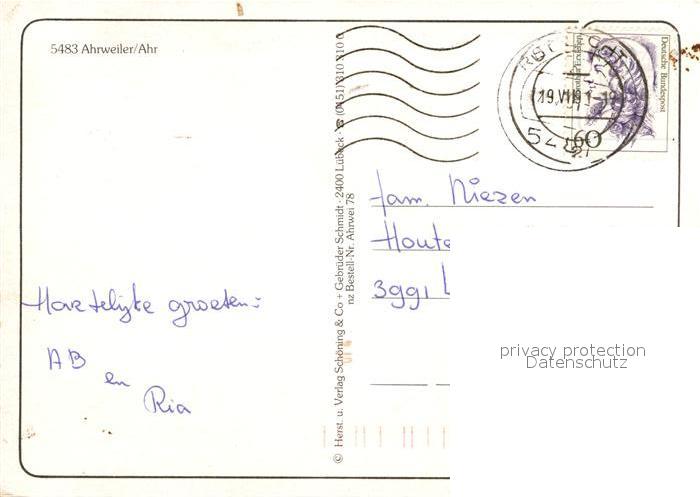 5483 Ahrweiler/Ahr
© Herst. u. Verlag Schöning & Co + Gebrüder Schmidt · 2400 Lübeck · ☎ (0451) 310 310
nz Bestell-Nr. Ahrwei 78
Deutsche Bundespost
60
19.VII.91
548
fam. Niezen
Houte
3991
Hartelijke groeten:
AB
en
Ria
privacy protection
Datenschutz